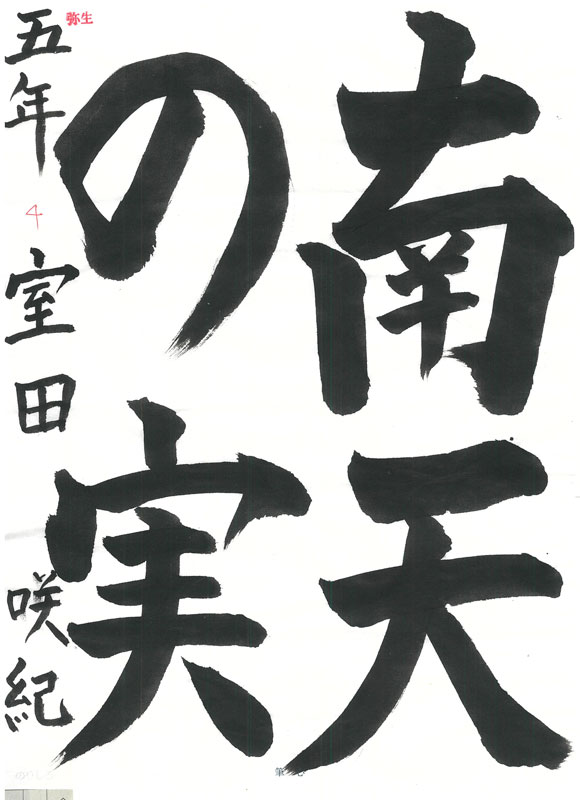 南天
の実
五年 4 室田 咲紀
弥生